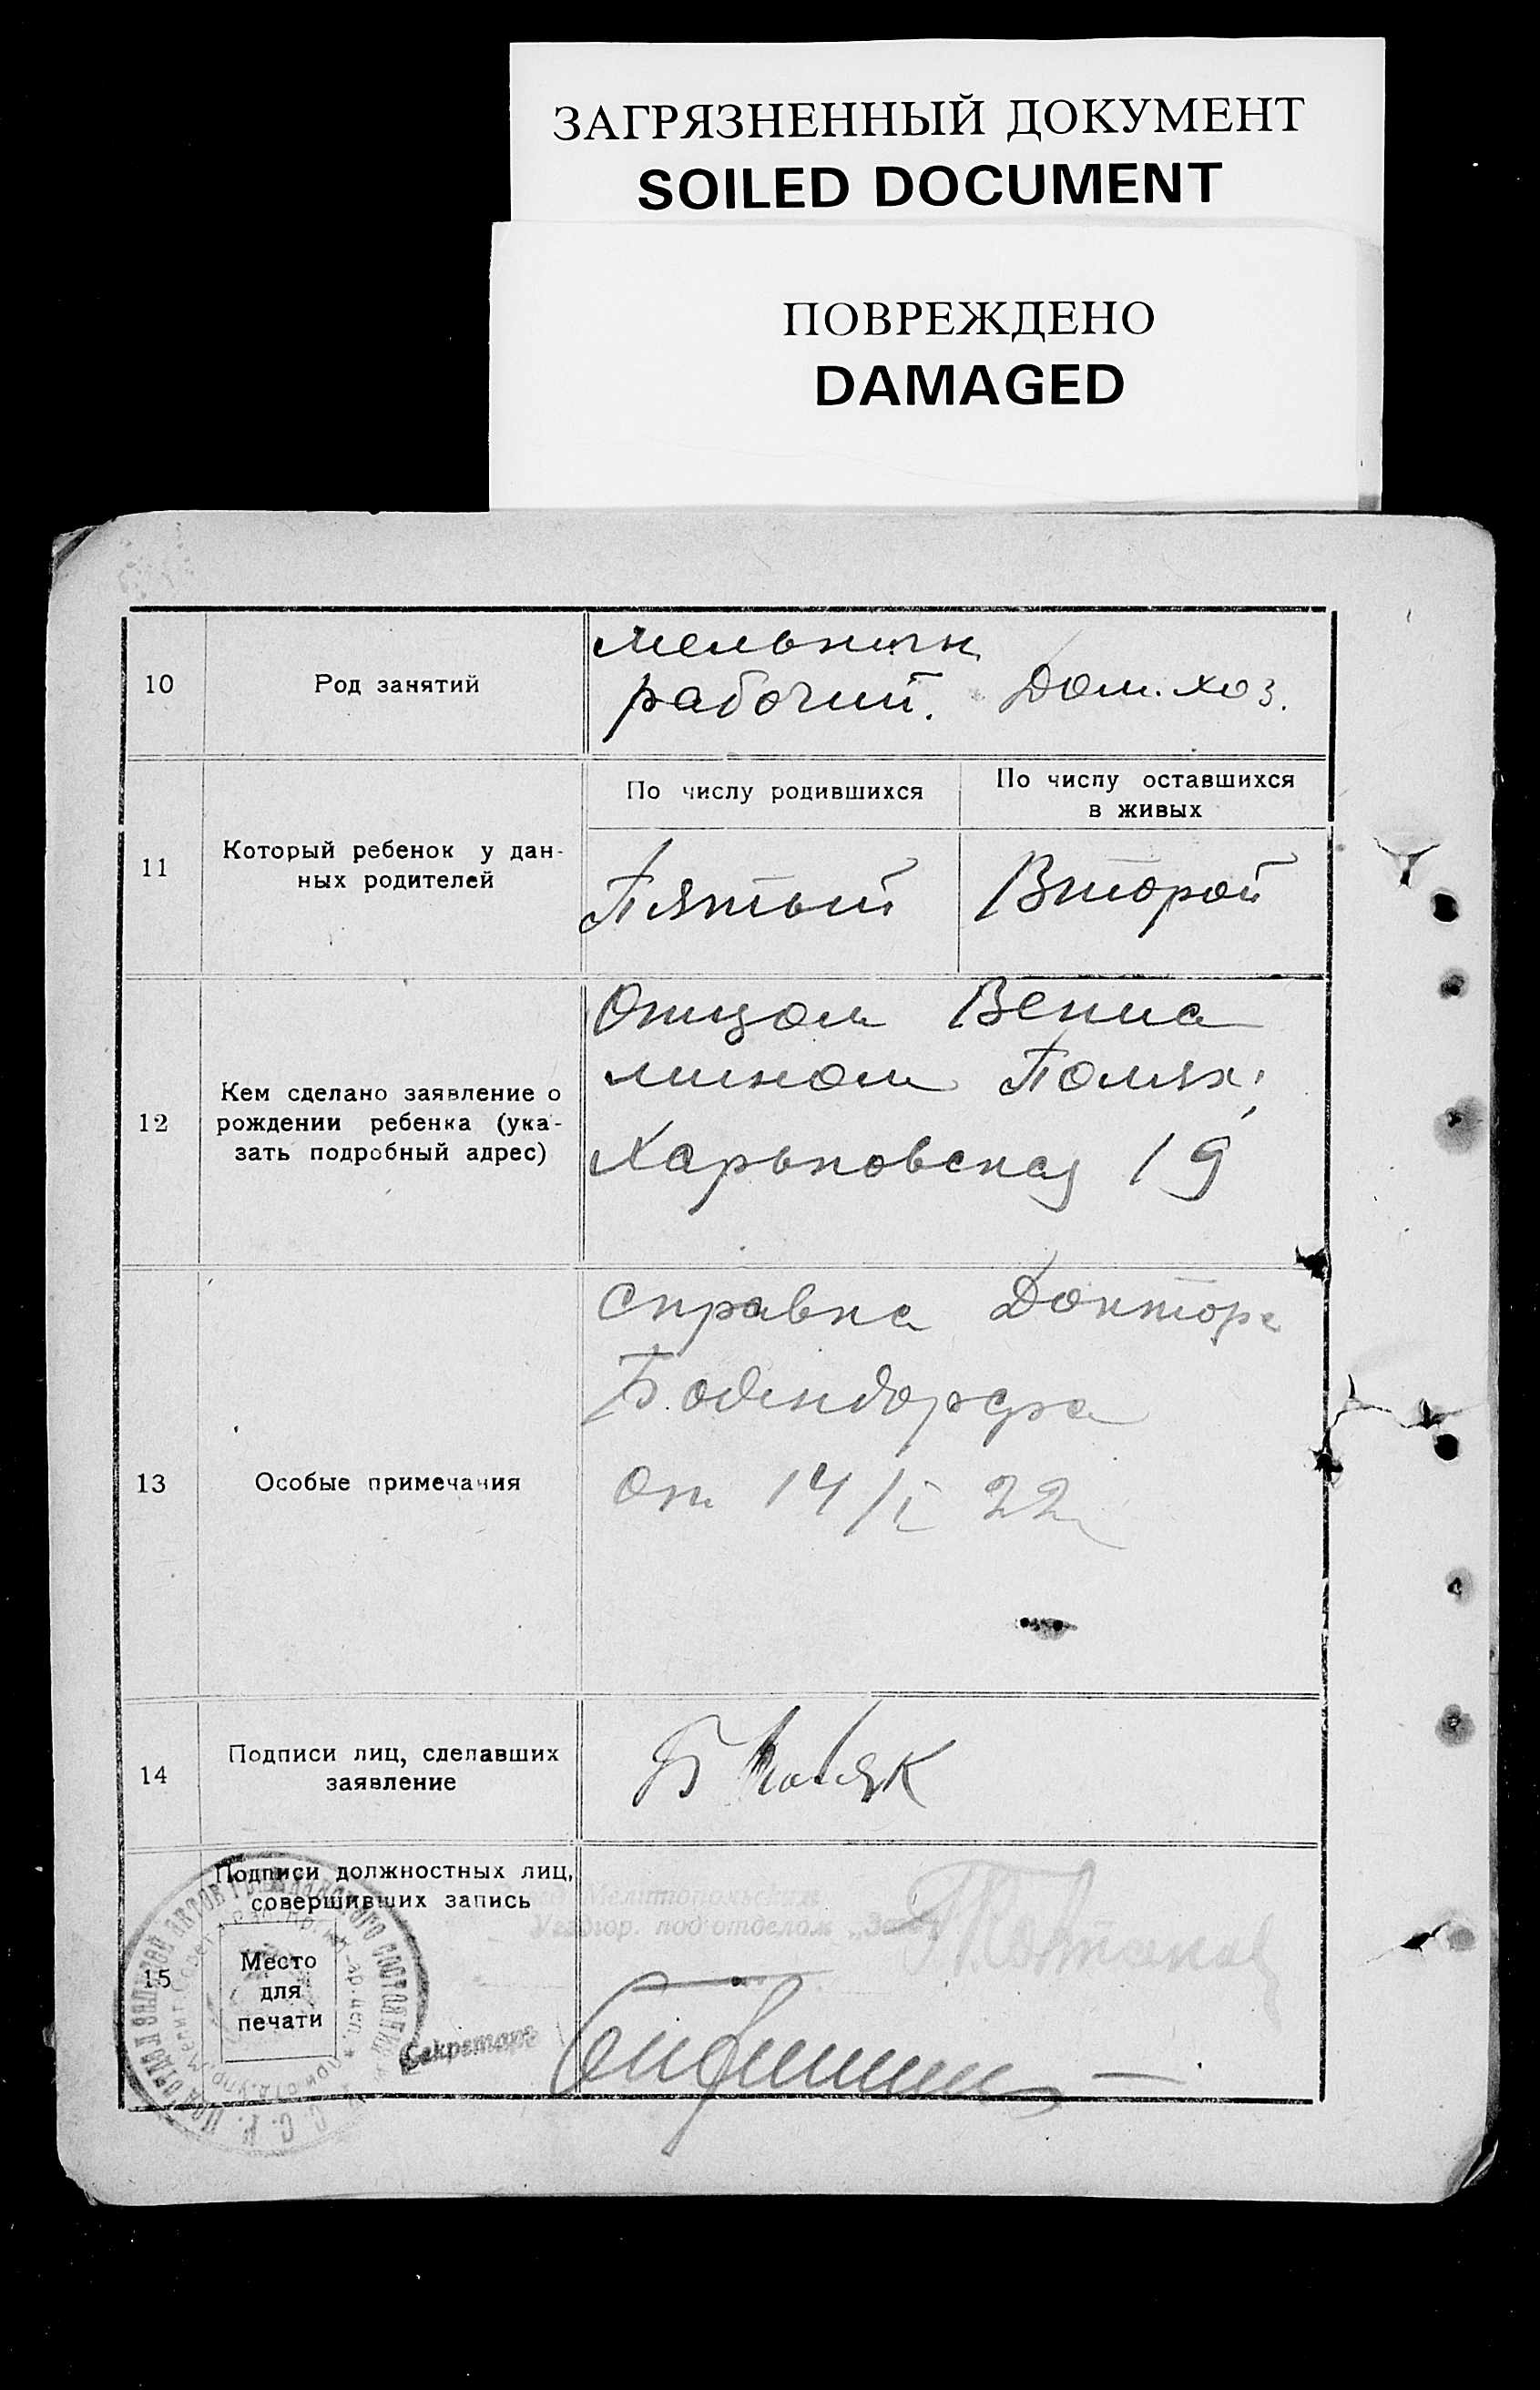 ЗАГРЯЗНЕННЫЙ ДОКУМЕНТ
SOILED DOCUMENT
ПОВРЕЖДЕНО
DAMAGED
10
Род занятий
мельничн
рабочий. Дом. хоз.
11
Который ребенок у дан-
ных родителей
По числу родившихся
По числу оставшихся
в живых
Пятый
Второй
12
Кем сделано заявление о
рождении ребенка (ука-
зать подробный адрес)
Отцом Вениа
мином Поляк;
Харьковская 19
13
Особые примечания
Справка Доктора
Бодендорфа
От 14/I 22
14
Подписи лиц, сделавших
заявление
Б Поляк
15
Подписи должностных лиц,
совершивших запись
Мелитопольским
под'отделом
Место
для
печати
Секретарь